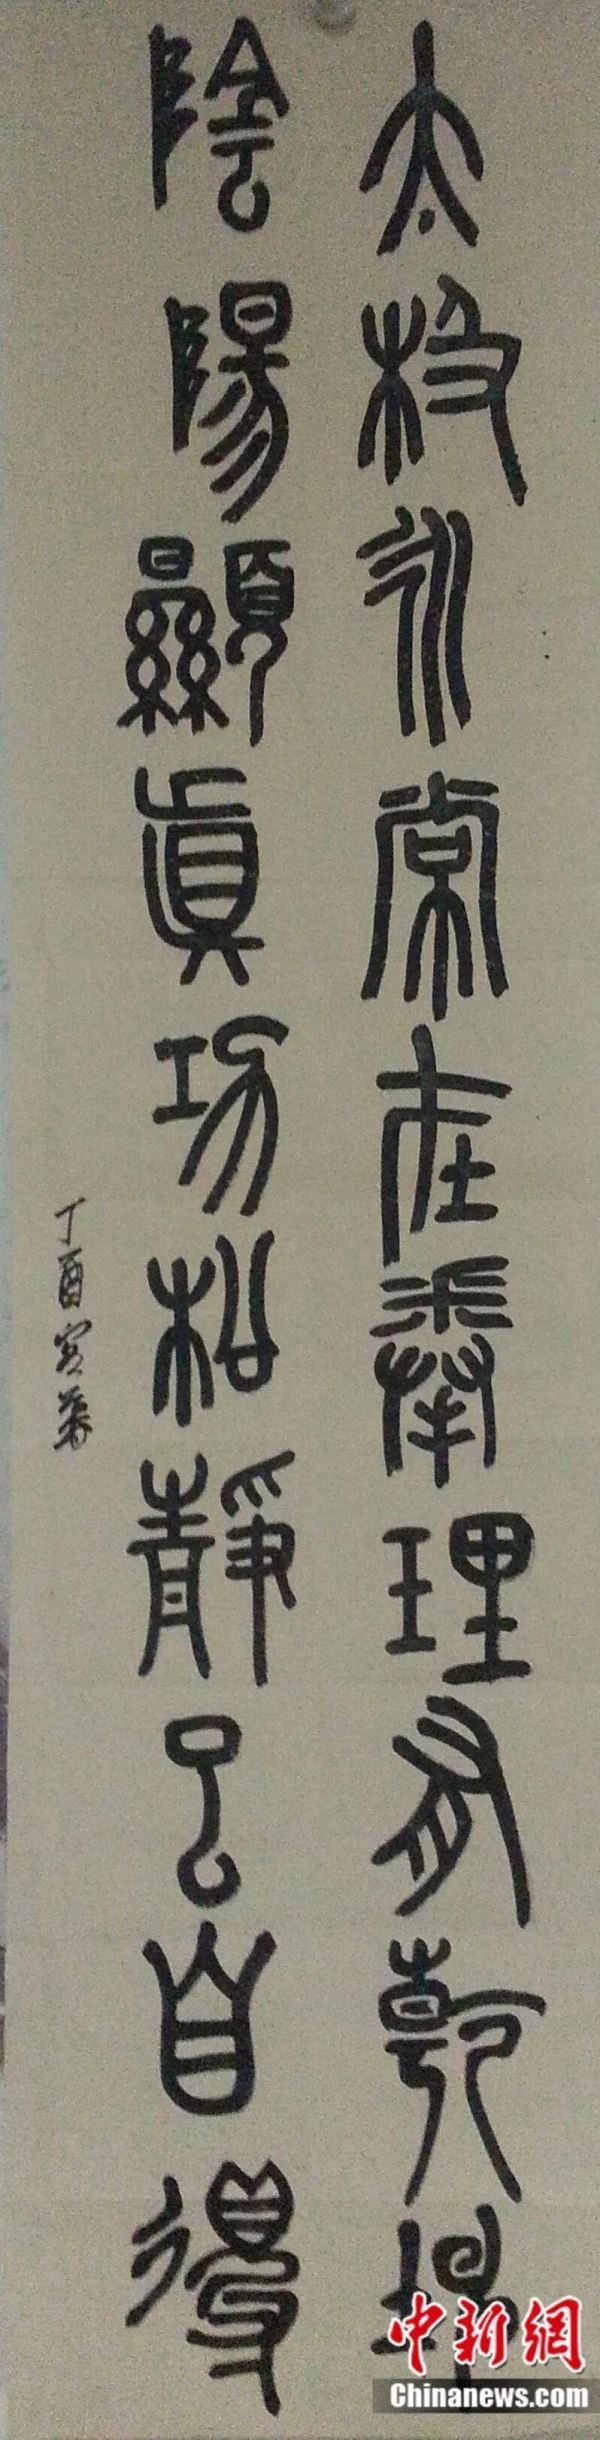 太极永常在拳理有乾坤
陰陽顯真功松靜了自得
丁酉
中新網
Chinanews.com